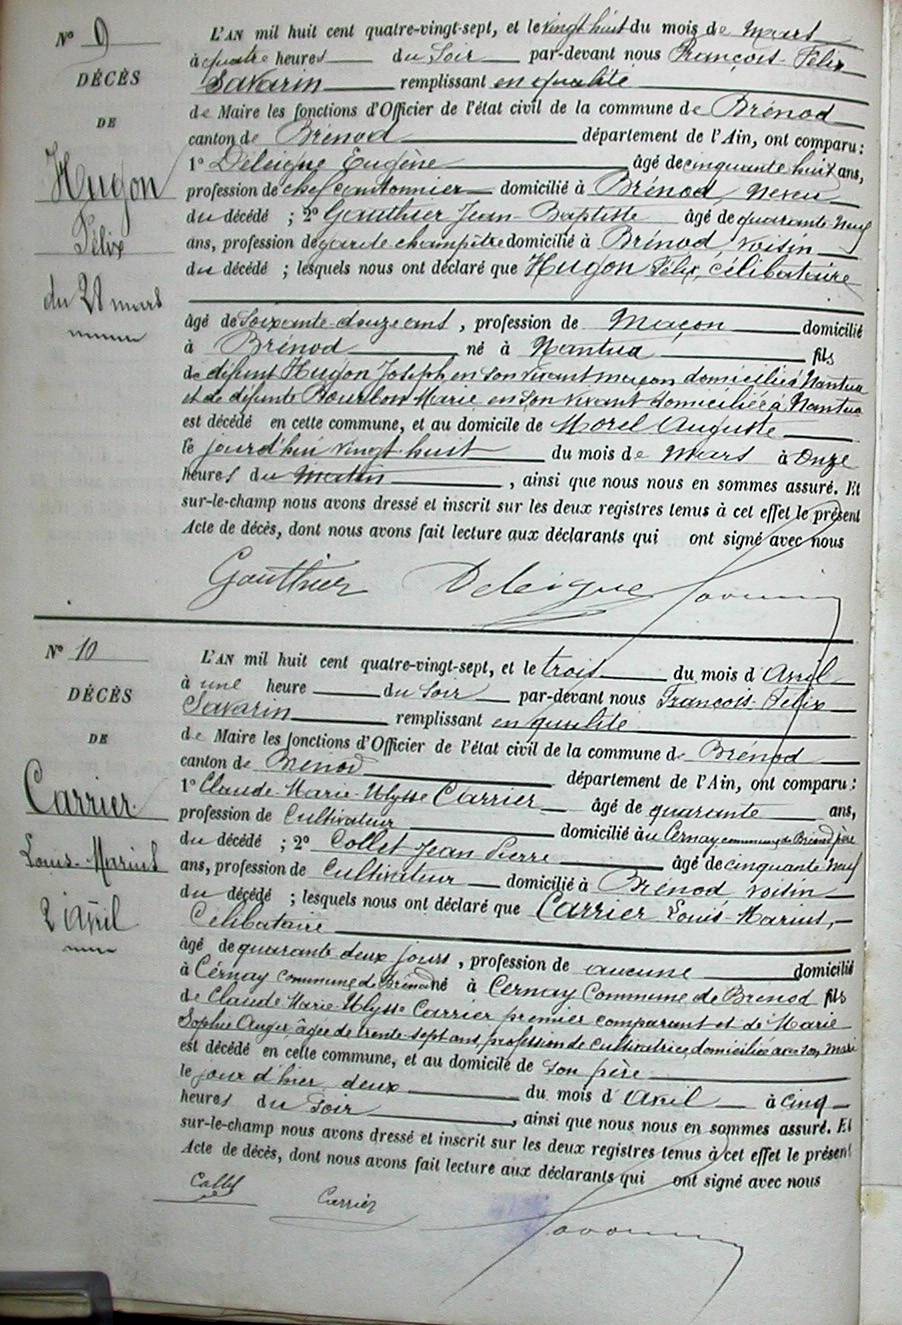 N° 9
DÉCÈS
DE
Hugon
Félix
du 28 mars
L'AN mil huit cent quatre-vingt-sept, et le vingt huit du mois de Mars
à quatre heures du Soir par-devant nous François Félix
Savarin remplissant en qualité
de Maire les fonctions d'Officier de l'état civil de la commune de Brénod
canton de Brénod département de l'Ain, ont comparu :
1° Deleigue Eugène âgé de cinquante huit ans,
profession de chef cantonnier domicilié à Brénod, Neveu
du décédé ; 2° Gauthier Jean Baptiste âgé de quarante neuf
ans, profession de garde champêtre domicilié à Brénod, voisin
du décédé ; lesquels nous ont déclaré que Hugon Félix, célibataire
âgé de Soixante-douze ans, profession de Maçon domicilié
à Brénod né à Nantua fils
de défunt Hugon Joseph en son vivant maçon domicilié à Nantua
et de défunte Bourbon Marie en son vivant domiciliée à Nantua
est décédé en cette commune, et au domicile de Morel Auguste
le jourd'hui vingt-huit du mois de Mars à Onze
heures du Matin, ainsi que nous nous en sommes assuré. Et
sur-le-champ nous avons dressé et inscrit sur les deux registres tenus à cet effet le présent
Acte de décès, dont nous avons fait lecture aux déclarants qui ont signé avec nous
Gauthier Deleigue Savarin
N° 10
DÉCÈS
DE
Carrier
Louis-Marius
2 avril
L'AN mil huit cent quatre-vingt-sept, et le trois du mois d'Avril
à une heure du Soir par-devant nous François-Félix
Savarin remplissant en qualité
de Maire les fonctions d'Officier de l'état civil de la commune de Brénod
canton de Brénod département de l'Ain, ont comparu :
1° Claude-Marie-Ulysse Carrier âgé de quarante ans,
profession de Cultivateur domicilié à u Cernay commune de Brénod père
du décédé ; 2° Collet Jean Pierre âgé de cinquante neuf
ans, profession de Cultivateur domicilié à Brénod voisin
du décédé ; lesquels nous ont déclaré que Carrier Louis-Marius,
Célibataire
âgé de quarante deux jours, profession de aucune domicilié
à Cérnay commune de Brénod né à Cernay Commune de Brenod fils
de Claude-Marie-Ulysse Carrier premier comparant et de Marie
Sophie Auger âgée de trente-sept ans, profession de cultivatrice, domiciliée avec son mari
est décédé en cette commune, et au domicile de son père
le jour d'hier deux du mois d'Avril à cinq
heures du Soir, ainsi que nous nous en sommes assuré. Et
sur-le-champ nous avons dressé et inscrit sur les deux registres tenus à cet effet le présent
Acte de décès, dont nous avons fait lecture aux déclarants qui ont signé avec nous
Collet Carrier Savarin